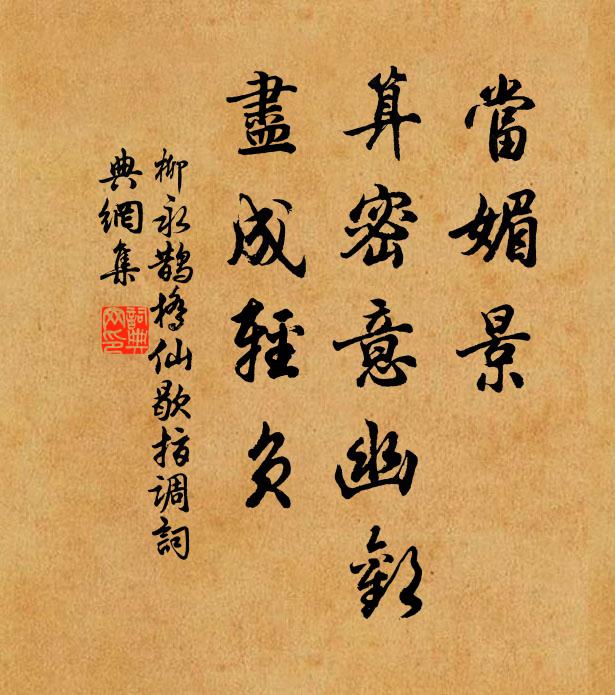 當媚景
算密意幽歡
盡成輕負
柳永鵲橋仙歇指調詞
典網集
詞典
网印